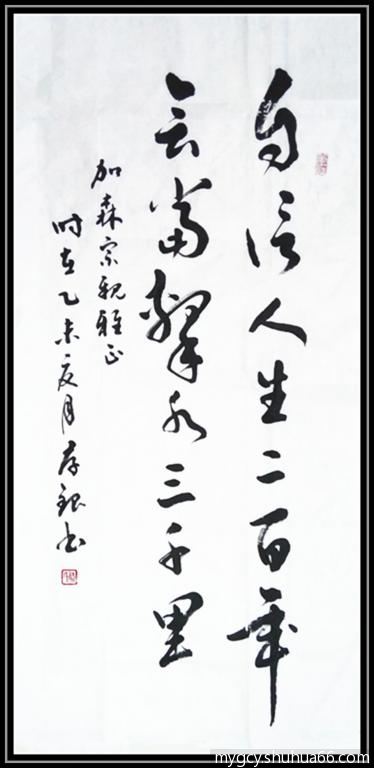 自信人生二百年
会当击水三千里
加森宗亲雅正
时在乙未夏月存银书
mygcyshuhua66.com